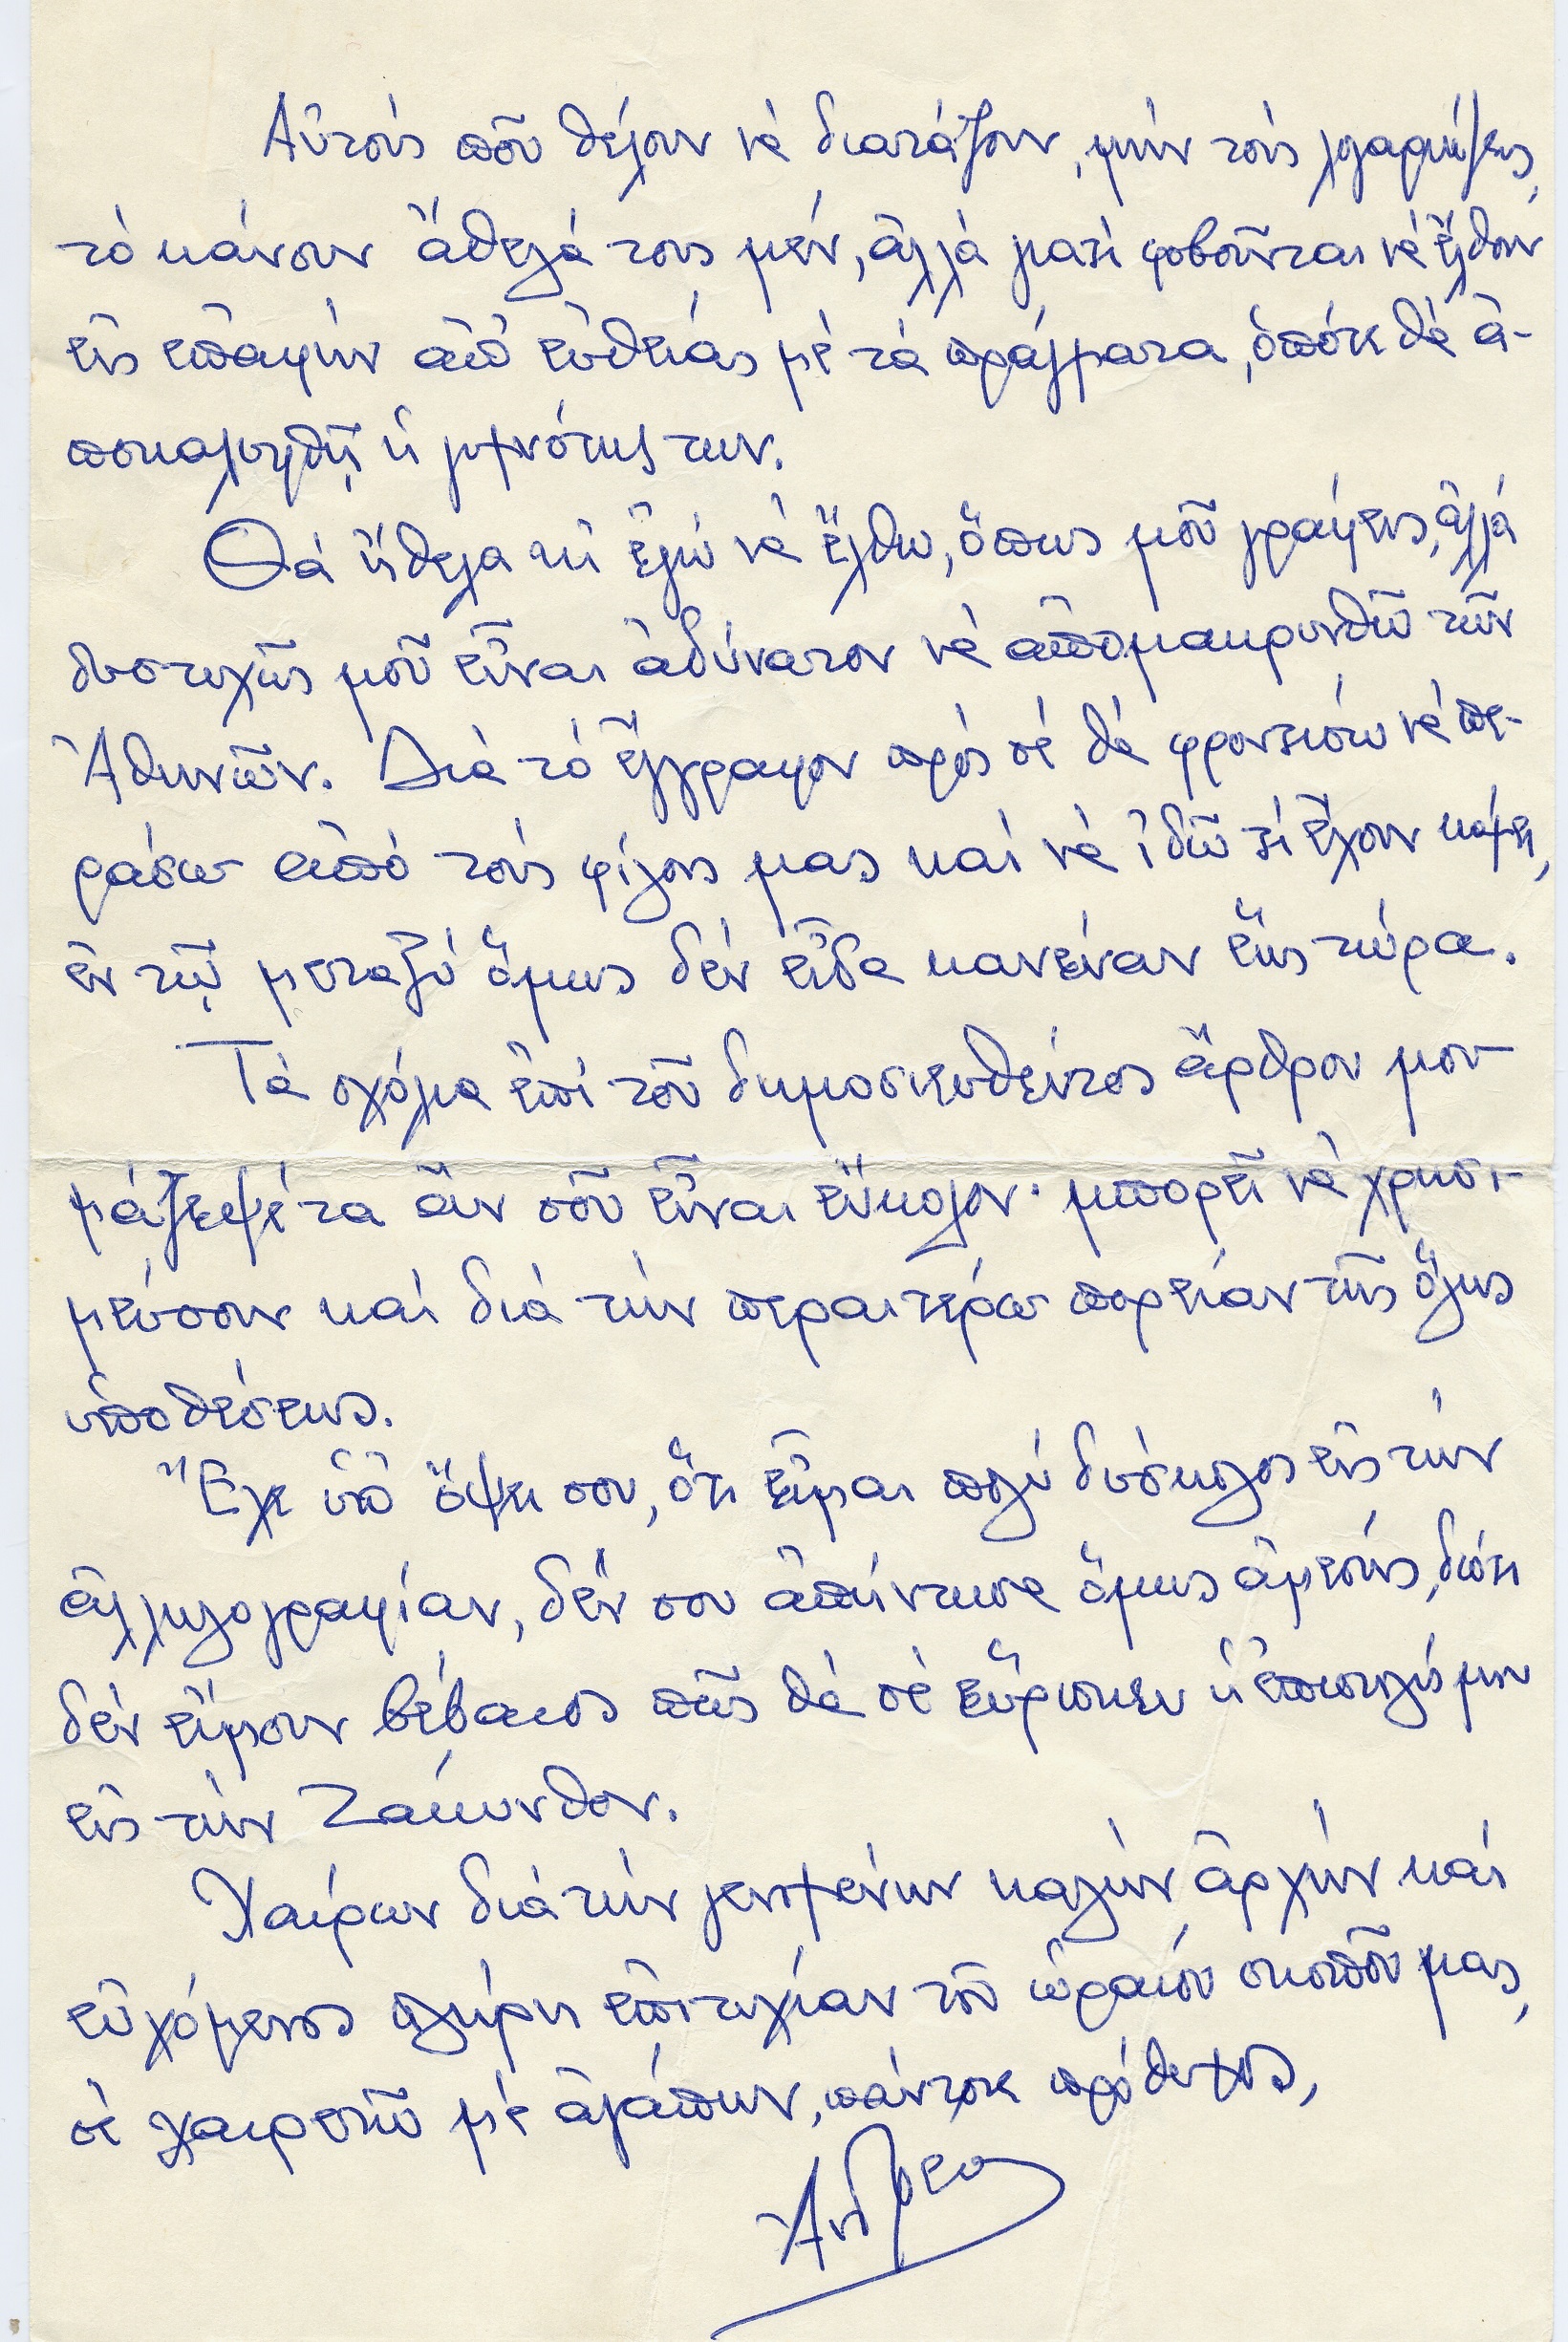 Αὐτούς ποῦ θέλουν νά διατάζουν, μήν τούς λησμονῇς,
τό κάνουν ἄθελά τους μέν, ἀλλά γιατί φοβοῦνται νά ἔλθουν
εἰς ἐπαφήν ἀπ' εὐθείας μέ τά πράγματα, ὁπότε θά ἀ-
ποκαλυφθῇ ἡ γυμνότης των.
Θά ἤθελα κι ἐγώ νά ἔλθω, ὅπως μοῦ γράφεις, ἀλλά
δυστυχῶς μοῦ εἶναι ἀδύνατον νά ἀπομακρυνθῶ τῶν
Ἀθηνῶν. Διά τό ἔγγραφον πρός σέ θά φροντίσω νά πε-
ράσω ἀπό τούς φίλους μας καί νά ἰδῶ τί ἔχουν κάμει,
ἐν τῷ μεταξύ ὅμως δέν εἶδα κανέναν ἕως τώρα.
Τά σχόλια ἐπί τοῦ δημοσιευθέντος ἄρθρου μου
μάζεψέ τα ἄν σοῦ εἶναι εὔκολον· μπορεῖ νά χρησι-
μεύσουν καί διά τήν περαιτέρω πορείαν τῆς ὅλης
ὑποθέσεως.
Ἔχε ὑπ' ὄψει σου, ὅτι εἶμαι πολύ δύσκολος εἰς τήν
ἀλληλογραφίαν, δέν σου ἀπήντησα ὅμως ἀμέσως, διότι
δέν εἴμουν βέβαιος πῶς θά σέ εὕρισκεν ἡ ἐπιστολή μου
εἰς τήν Ζάκυνθον.
Χαίρων διά τήν γενομένην καλήν ἀρχήν καί
εὐχόμενος πλήρη ἐπιτυχίαν τοῦ ὡραίου σκοποῦ μας,
σέ χαιρετῶ μέ ἀγάπην, πάντοτε πρόθυμος,
Ἀνδρέας